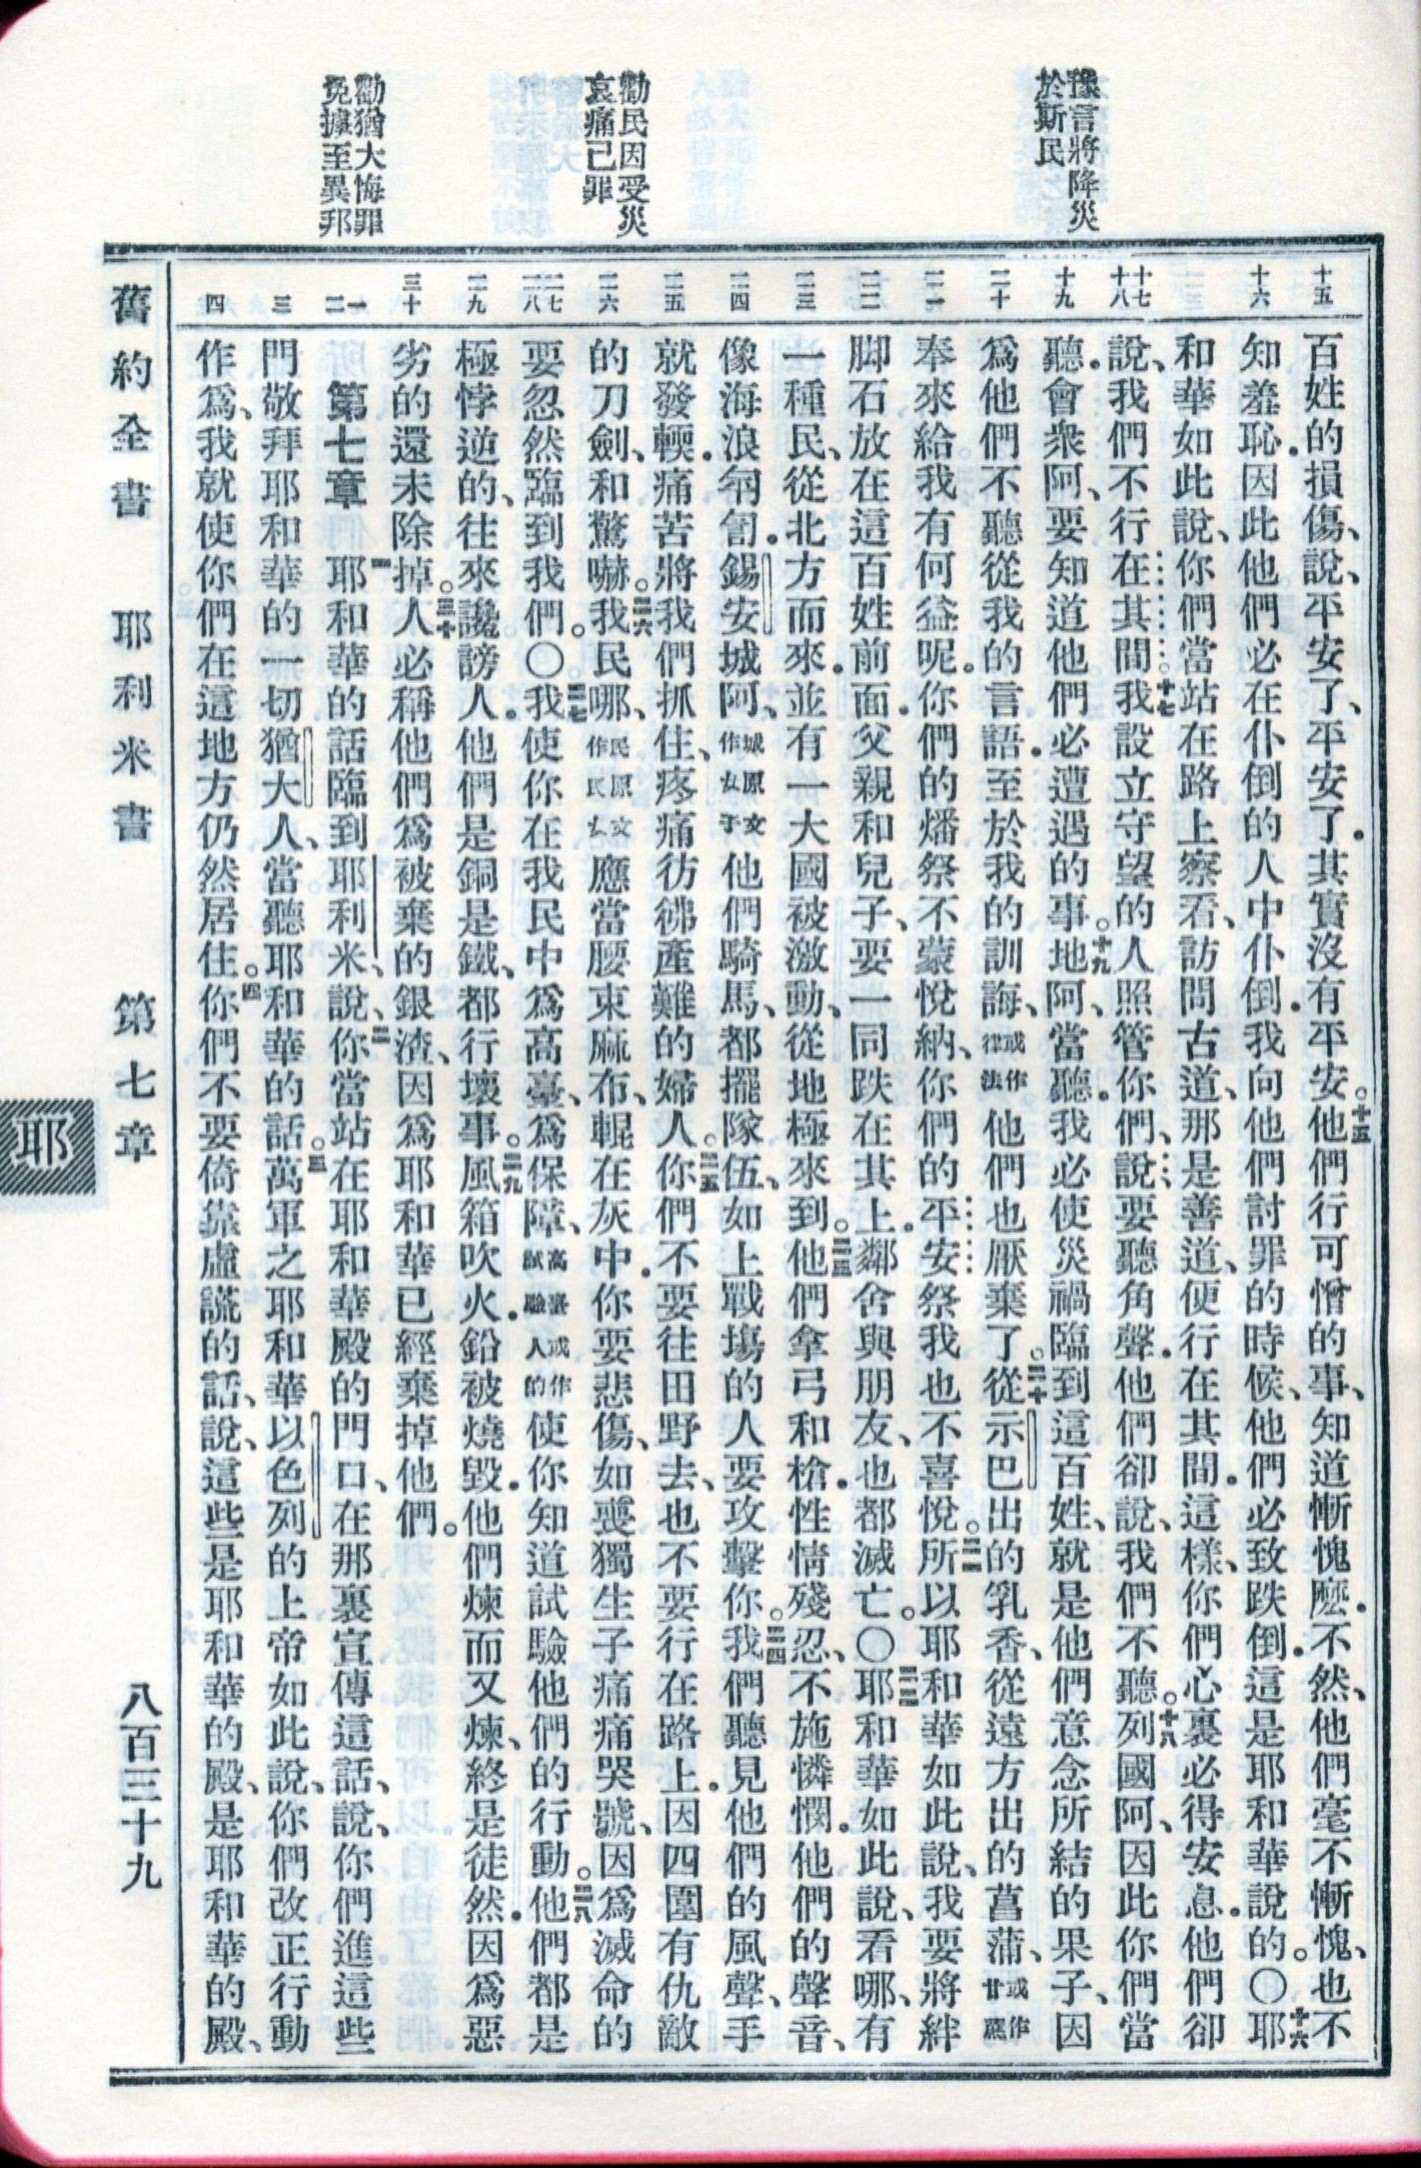 豫言將降災
於斯民
勸民因受災
哀痛已罪
勸猶大悔罪
免擄至異邦
十五
十六
十七
十八
十九
二十
二一
二二
二三
二四
二五
二六
二七
二八
二九
三十
一
二
三
四
百姓的損傷、說、平安了、平安了．其實沒有平安。十五他們行可憎的事、知道慚愧麽．不然、他們毫不慚愧、也不
知羞恥．因此他們必在仆倒的人中仆倒．我向他們討罪的時候、他們必致跌倒．這是耶和華說的。〇十六耶
和華如此說、你們當站在路上察看、訪問古道、那是善道、便行在其間．這樣、你們心裏必得安息．他們卻
說、我們不行在其間。十七我設立守望的人照管你們、說、要聽角聲．他們卻說、我們不聽。十八列國阿、因此你們當
聽．會衆阿、要知道他們必遭遇的事。十九地阿、當聽．我必使災禍臨到這百姓、就是他們意念所結的果子、因
爲他們不聽從我的言語．至於我的訓誨、或作律法他們也厭棄了。二十從示巴出的乳香、從遠方出的菖蒲、或作甘蔗
奉來給我有何益呢．你們的燔祭不蒙悅納、你們的平安祭我也不喜悅。二一所以耶和華如此說、我要將絆
脚石放在這百姓前面．父親和兒子、要一同跌在其上．鄰舍與朋友、也都滅亡。〇二二耶和華如此說、看哪、有
一種民、從北方而來．並有一大國被激動、從地極來到。二三他們拿弓和槍．性情殘忍、不施憐憫．他們的聲音、
像海浪匉訇．錫安城阿、城原文作女子他們騎馬、都擺隊伍、如上戰塲的人要攻擊你。二四我們聽見他們的風聲、手
就發輭．痛苦將我們抓住、疼痛彷彿產難的婦人。二五你們不要往田野去、也不要行在路上．因四圍有仇敵
的刀劍、和驚嚇。二六我民哪、民原文作民女應當腰束麻布、輥在灰中．你要悲傷、如喪獨生子痛痛哭號、因爲滅命的
要忽然臨到我們。〇二七我使你在我民中爲高臺、爲保障、高臺或作試驗人的使你知道試驗他們的行動。二八他們都是
極悖逆的、往來讒謗人．他們是銅是鐵、都行壞事。二九風箱吹火．鉛被燒毀．他們煉而又煉、終是徒然．因爲惡
劣的還未除掉。三十人必稱他們爲被棄的銀渣、因爲耶和華已經棄掉他們。
第七章　一耶和華的話臨到耶利米、說、二你當站在耶和華殿的門口、在那裏宣傳這話、說、你們進這些
門敬拜耶和華的一切猶大人、當聽耶和華的話。三萬軍之耶和華以色列的上帝如此說、你們改正行動
作爲、我就使你們在這地方仍然居住。四你們不要倚靠虛謊的話、說、這些是耶和華的殿、是耶和華的殿、
舊約全書　耶利米書　第七章　八百三十九
耶